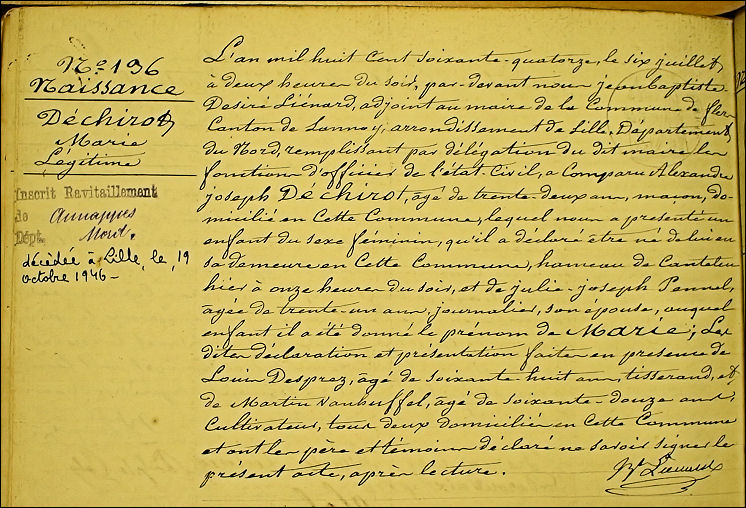 Nº 196
Naissance
Déchirot
Marie
Légitime
Inscrit Ravitaillement
de Annappes
Dépt. Nord.
décédée à Lille, le 19
octobre 1946 -
L'an mil huit cent soixante-quatorze, le six juillet,
à deux heures du soir, par-devant nous jean Baptiste
Désiré Liénard, adjoint au maire de la Commune de flers
Canton de Lannoy, arrondissement de Lille, Département
du Nord, remplissant par délégation du dit maire les
fonctions d'officier de l'état-Civil, a Comparu Alexandre
joseph Déchirot, âgé de trente-deux ans, maçon, do-
micilié en Cette Commune, lequel nous a présenté un
enfant du sexe féminin, qu'il a déclaré être né de lui en
sa demeure en Cette Commune, hameau de Canteleu
hier à onze heures du soir, et de julie-joseph Pennel,
âgée de trente-un ans, journalier, son épouse, auquel
enfant il a été donné le prénom de Marie; Les
dites déclaration et présentation faites en présence de
Louis Desprez, âgé de soixante-huit ans, tisserand, et
de Martin Vanbuffel, âgé de soixante-douze ans,
Cultivateur, tous deux domiciliés en Cette Commune
et ont les père et témoins déclaré ne savoir signer le
présent acte, après lecture.